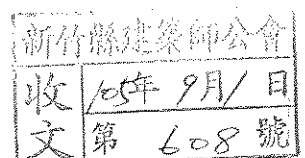 新竹縣建築師公會
收 105年 9月1日
文 第 608 號